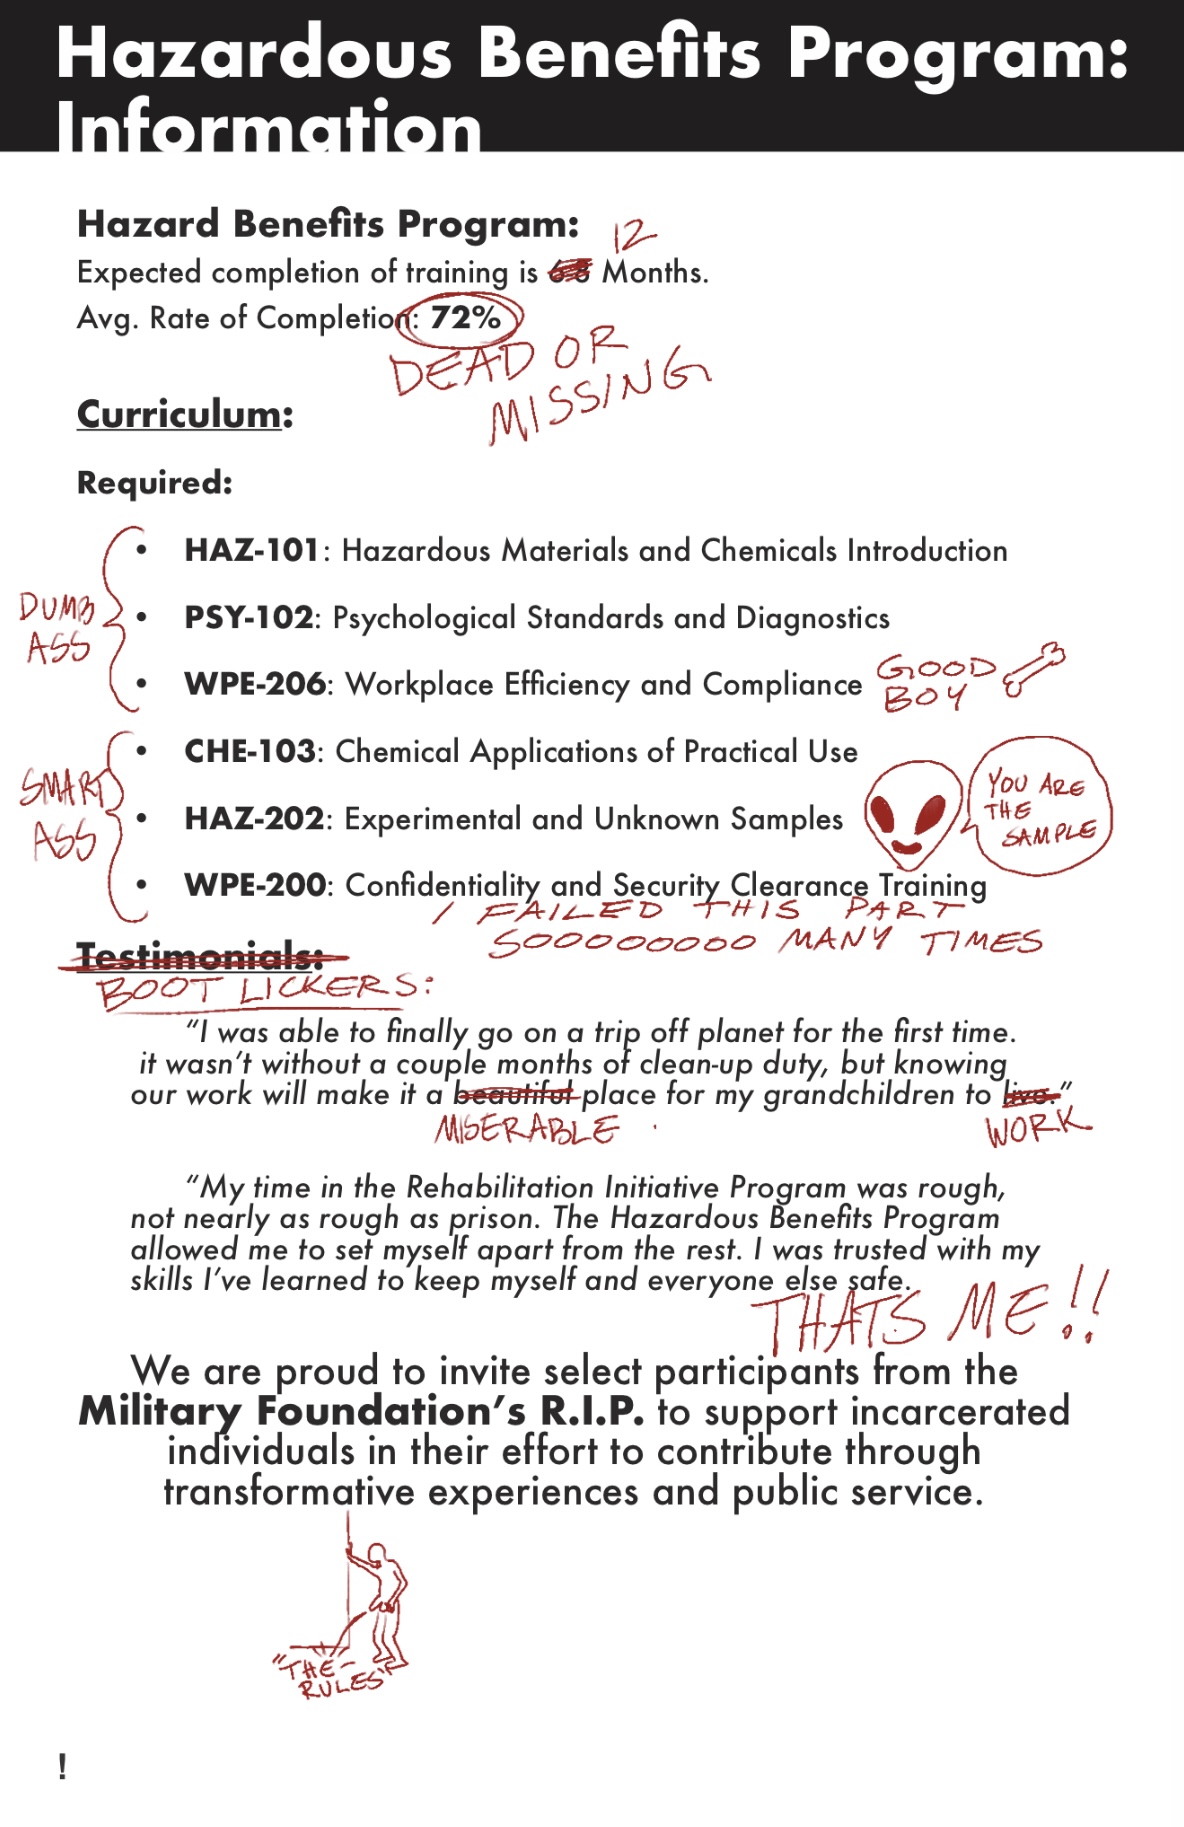 Hazardous Benefits Program:
Information
Hazard Benefits Program:
12
Expected completion of training is 6-8 Months.
Avg. Rate of Completion: 72%
DEAD OR
MISSING
Curriculum:
Required:
• HAZ-101: Hazardous Materials and Chemicals Introduction
DUMB
ASS
• PSY-102: Psychological Standards and Diagnostics
• WPE-206: Workplace Efficiency and Compliance
GOOD
BOY
• CHE-103: Chemical Applications of Practical Use
SMART
ASS
• HAZ-202: Experimental and Unknown Samples
YOU ARE
THE
SAMPLE
• WPE-200: Confidentiality and Security Clearance Training
I FAILED THIS PART
SOOOOOOOOO MANY TIMES
Testimonials:
BOOT LICKERS:
“I was able to finally go on a trip off planet for the first time.
it wasn’t without a couple months of clean-up duty, but knowing
our work will make it a beautiful place for my grandchildren to live.”
MISERABLE
WORK
“My time in the Rehabilitation Initiative Program was rough,
not nearly as rough as prison. The Hazardous Benefits Program
allowed me to set myself apart from the rest. I was trusted with my
skills I’ve learned to keep myself and everyone else safe.
THATS ME!!
We are proud to invite select participants from the
Military Foundation’s R.I.P. to support incarcerated
individuals in their effort to contribute through
transformative experiences and public service.
"THE
RULES"
!